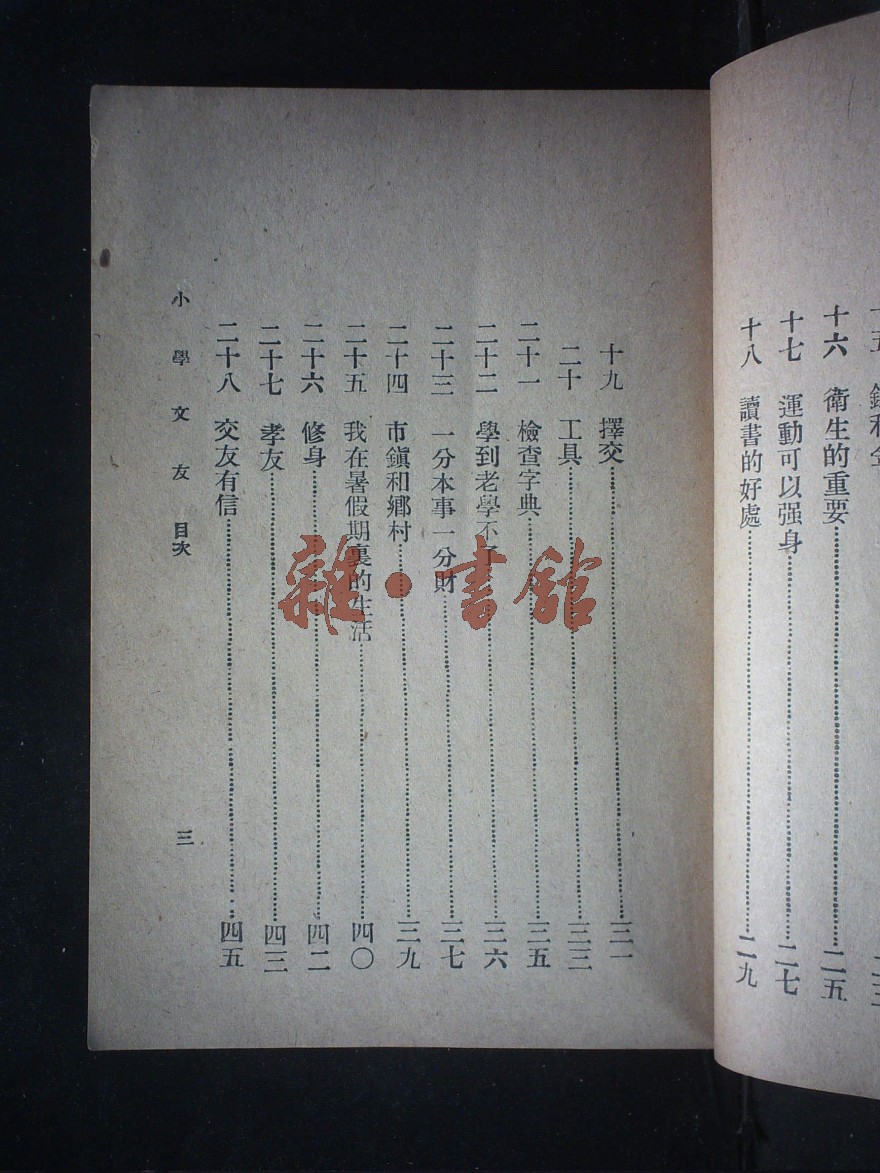 十六　衛生的重要……二五
十七　運動可以强身……二七
十八　讀書的好處……二九
十九　擇交……三一
二十　工具……三三
二十一　檢查字典……三五
二十二　學到老學不了……三六
二十三　一分本事一分財……三七
二十四　市鎮和鄉村……三九
二十五　我在暑假期裏的生活……四〇
二十六　修身……四二
二十七　孝友……四三
二十八　交友有信……四五
小學文友　目次　三
雜·書館